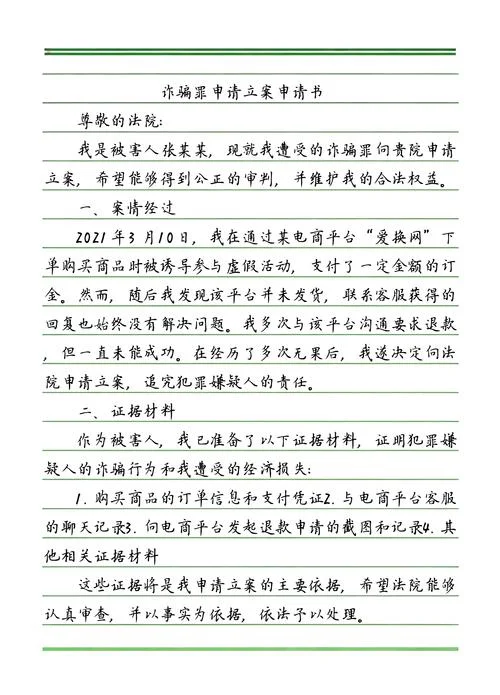 诈骗罪申请立案申请书
尊敬的法院:
我是被害人张某某，现就我遭受的诈骗罪向贵院申请
立案，希望能够得到公正的审判，并维护我的合法权益。
一、案情经过
2021年3月10日，我在通过某电商平台“爱换网”下
单购买商品时被诱导参与虚假活动，支付了一定金额的订
金。然而，随后我发现该平台并未发货，联系客服获得的
回复也始终没有解决问题。我多次与该平台沟通要求退款
，但一直未能成功。在经历了多次无果后，我遂决定向法
院申请立案，追究犯罪嫌疑人的责任。
二、证据材料
作为被害人，我已准备了以下证据材料，证明犯罪嫌
疑人的诈骗行为和我遭受的经济损失:
1. 购买商品的订单信息和支付凭证2. 与电商平台客服
的聊天记录3. 向电商平台发起退款申请的截图和记录4. 其
他相关证据材料
这些证据将是我申请立案的主要依据，希望法院能够
认真审查，并以事实为依据，依法予以处理。